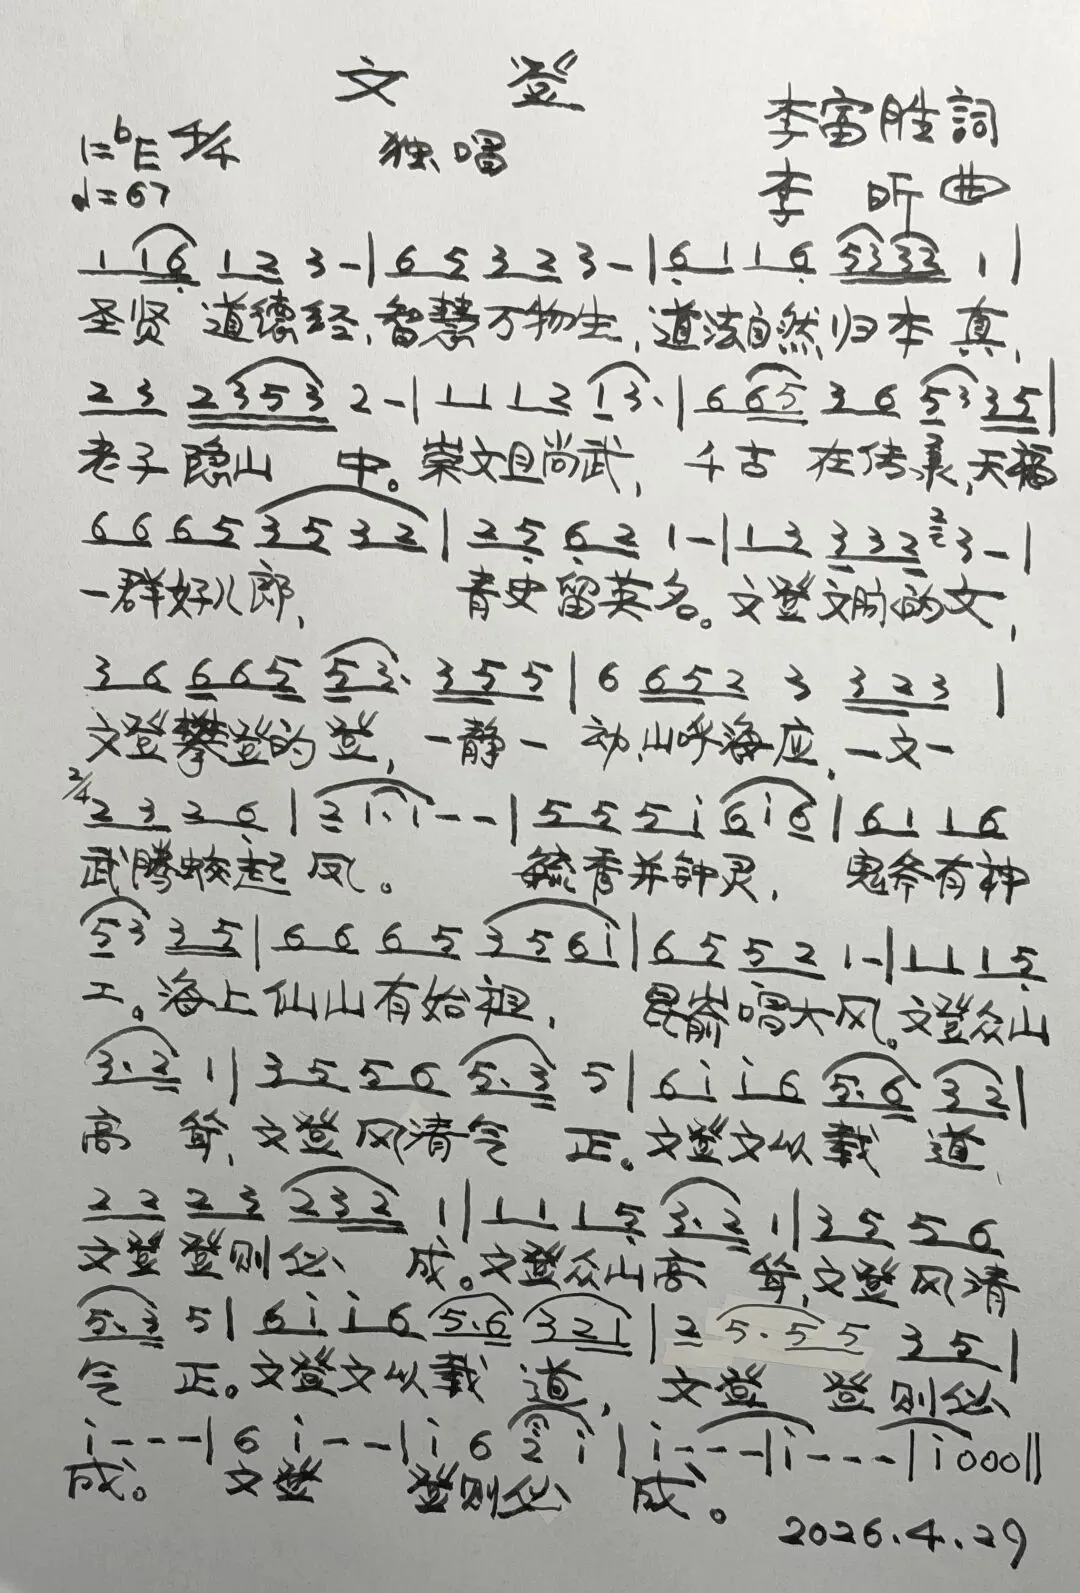 文登
李富胜詞
1=bE 4/4 独唱
♩=67
李昕曲
1 1 6 1 2 3 - | 6 5 3 2 3 - | 6 1 1 6 5 3 3 2 1 |
圣贤道德经,智慧万物生,道法自然归本真,
2 3 2 3 5 3 2 - | 1 1 1 2 1 3· | 6 6 5 3 6 5 3 3 5 |
老子隐山中。崇文且尚武,千古在传承,天福
6 6 6 5 3 5 3 2 | 2 5 6 2 1 - | 1 3 3 3 2 3 - |
一群好儿郎,青史留英名。文登文的文,
3 6 6 6 5 5 3· 3 5 5 | 6 6 5 2 3 3 2 3 |
文登攀登的登,一静一动山呼海应,一文一
2/4
2 3 2 6 | 2 1· 1 - - | 5 5 5 i 6 i 6 | 6 1 1 6
武腾蛟起凤。毓秀并钟灵,鬼斧有神
5 3 3 5 | 6 6 6 5 3 5 6 i | 6 5 5 2 1 - | 1 1 1 5
工。海上仙山有始祖,昆嵛唱大风。文登众山
3· 2 1 | 3 5 5 6 5· 3 5 | 6 i i 6 5· 6 3 2 |
高耸,文登风清气正。文登文以载道,
2 2 2 3 2 3 2 1 | 1 1 1 5 3· 2 1 | 3 5 5 6
文登登则必成。文登众山高耸,文登风清
5· 3 5 | 6 i i 6 5· 6 3 2 1 | 2 5· 5 5 3 5 |
气正。文登文以载道,文登登则必
i - - - | 6 i - - | i 6 2 i | i - - - | i - - - | i 0 0 0 ||
成。文登登则必成。
2026.4.29